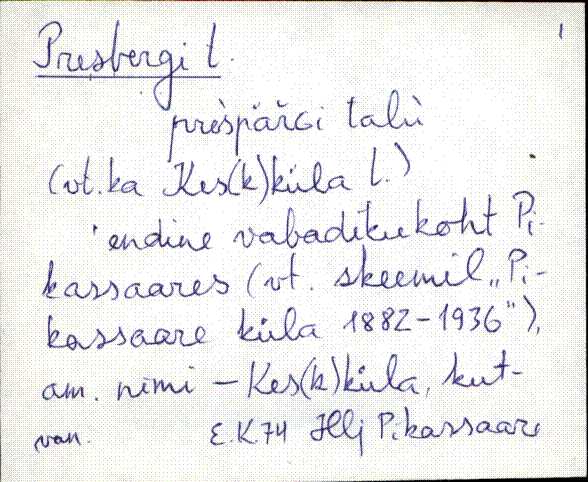 Presbergi t. 1
prèspäŕGi talù
(vt. ka Kes(k)küla t.)
'endine vabadikukoht Pi-
kassaares (vt. skeemil „Pi-
kassaare küla 1882-1936"),
am. nimi - Kes(k)küla, kut-
van. E.K74 Hlj Pikassaare